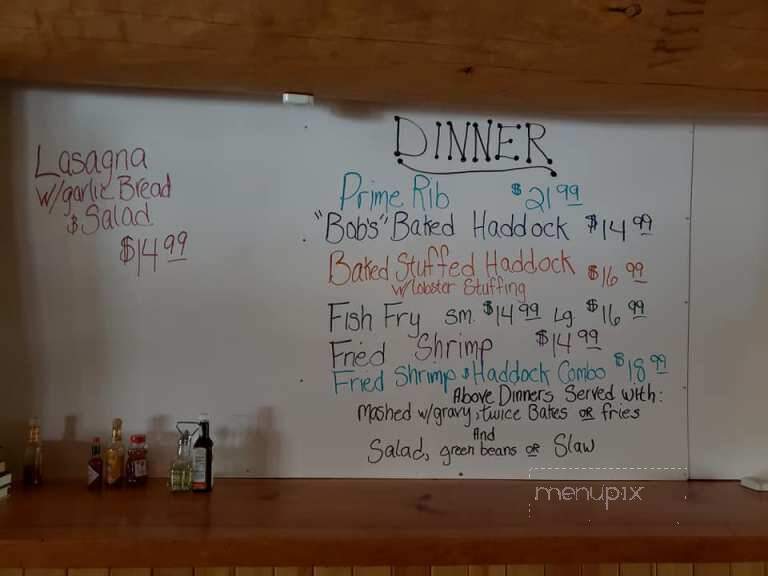 Lasagna
w/garlic Bread
& Salad
$14.99
DINNER
Prime Rib $21.99
"Bob's" Baked Haddock $14.99
Baked Stuffed Haddock $16.99
w/lobster Stuffing
Fish Fry sm. $14.99 Lg. $16.99
Fried Shrimp $14.99
Fried Shrimp & Haddock Combo $18.99
Above Dinners Served with:
Mashed w/gravy, twice Bakes or fries
And
Salad, green beans or Slaw
menupix